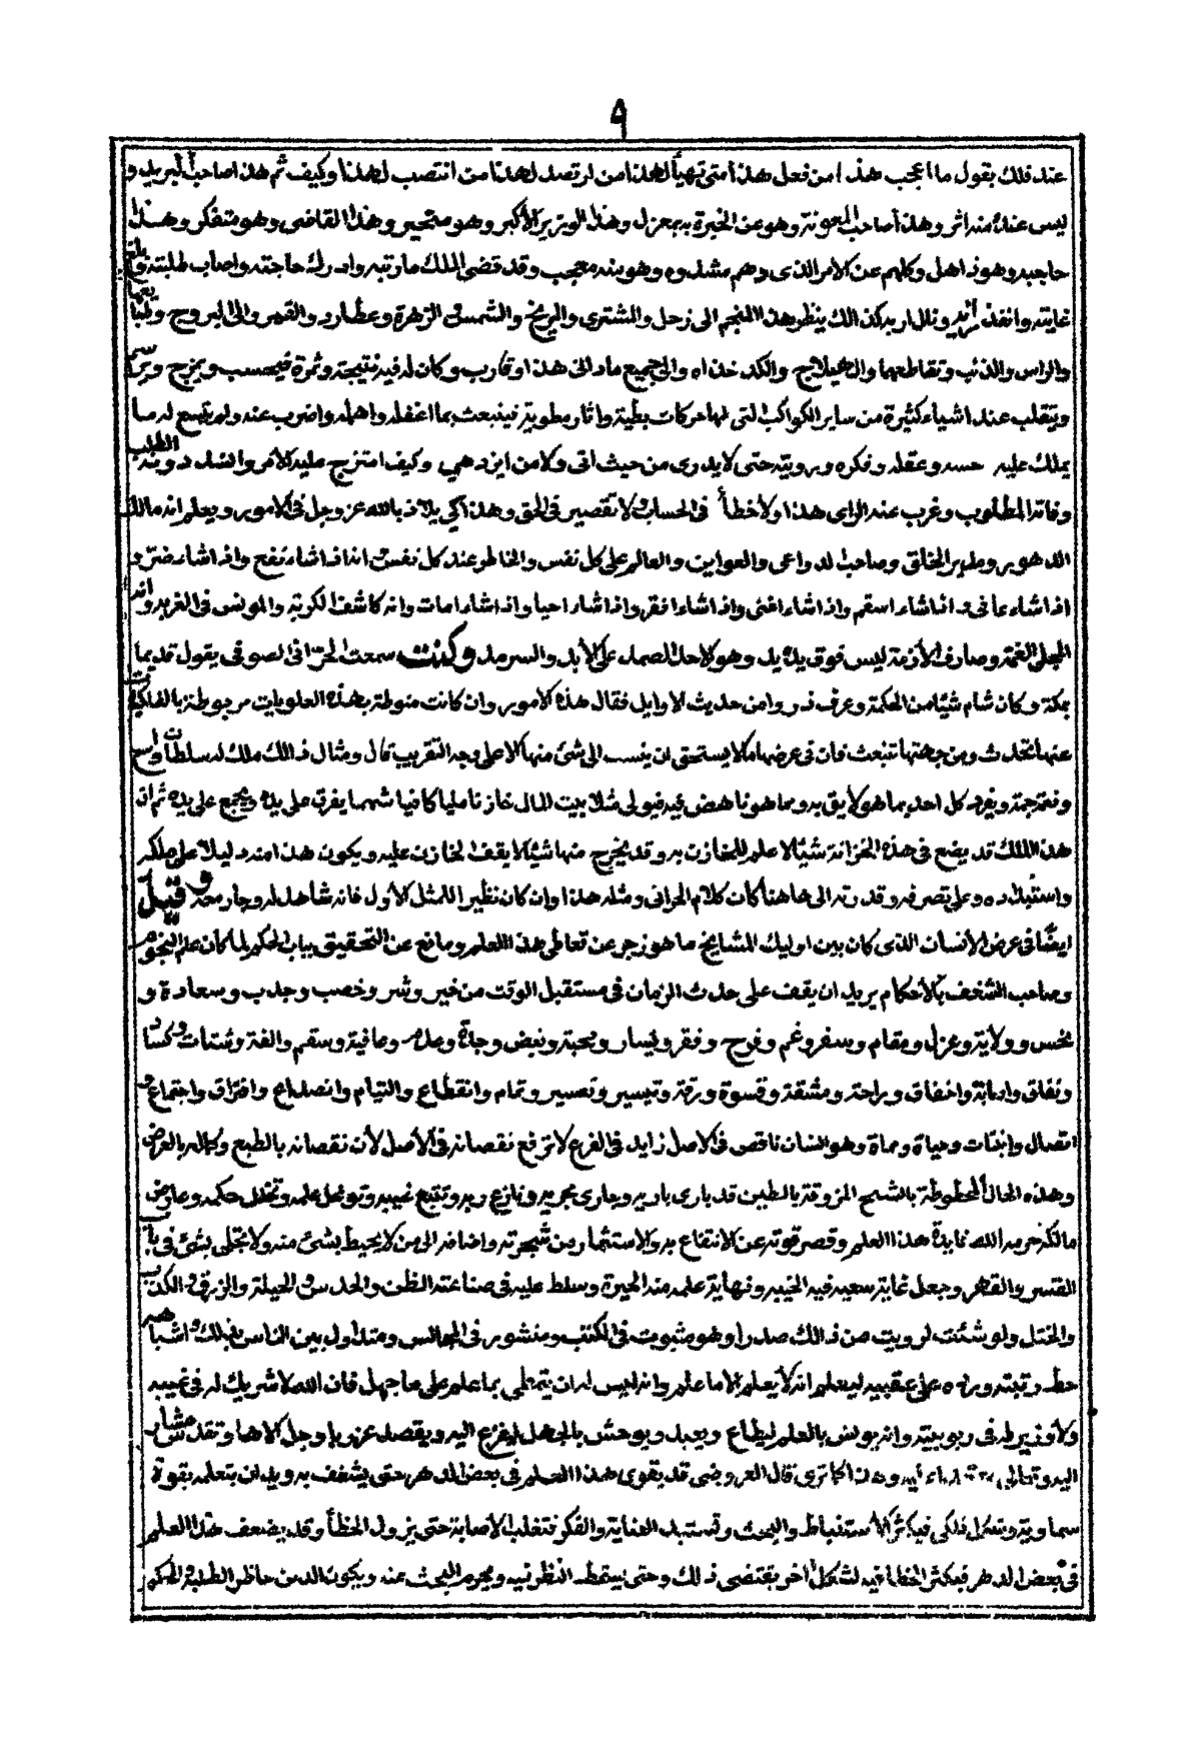 ٩
عند ذلك يقول ما اعجب هذا من فعل هذا متى تهيأ لهذا من ارتصد لهذا من انتصب لهذا وكيف ثم هذا صاحب البريد و
ليس عنده منه اثر وهذا صاحب المعونة وهو عن الخبرة به بمعزل وهذا الوزير الأكبر وهو متحير وهذا القاضى وهو متفكر وهذا
حاجبه وهو ذاهل وكلهم عن الامر الذى دهم مشدوه وهو منه معجب وقد قضى الملك مأربته وادرك حاجته واصاب طلبته وبلغ
غايته وانفذ ونال اربه كذلك ينظر هذا المنجم الى زحل والمشترى والمريخ والشمس والزهرة وعطارد والقمر والى البروج وطبايعها
والراس والذنب وتقاطعهما والهيلاج والكدخداه والى جميع ما دانى هذا او قارب وكان له فيه نتيجة وثمرة فيحسب ويمزج ويرسم
وينقلب عند اشياء كثيرة من ساير الكواكب التى لها حركات بطيئة واثار مطوية فينبعث بما اغفله واهمله واضرب عنه ولم يتسع له ما
يملك عليه حسه وعقله وفكره ورويته حتى لا يدرى من حيث اتى ولا من اين دهي وكيف امتزج عليه الامر وانسد دونه الطلب
وفاته المطلوب وغرب عند الراى هذا ولا خطأ فى الحساب ولا تقصير فى الحق وهذا كى يلاذ بالله عز وجل فى الامور ويعلم انه مالك
الدهور ومدبر الخلق وصاحب الدواعى والعواين والعالم على كل نفس والخاطر عند كل نفس انه اذا شاء نفع واذا شاء ضر و
اذا شاء عافى و اذا شاء اسقم واذا شاء اغنى واذا شاء افقر واذا شاء احيا واذا شاء امات وانه كاشف الكربة والمونس فى الغربة وانه
المجلى الغمة وصارف الأزمة ليس فوق يده يد وهو الاحد الصمد على الأبد والسرمد وكنت سمعت الحرانى الصوفى يقول قديما
بمكة وكان شام شيئا من الحكمة وعرف ذروا من حديث الاوايل فقال هذه الامور وان كانت منوطة بهذه العلويات مربوطة بالفلكيات
عنها تحدث ومن جهتها تنبعث فان فى عرضها ما لا يستحق ان ينسب الى شئ منها الا على وجه التقريب قال ومثال ذلك ملك له سلطان واسع
ونعم جمة ويفرد كل احد بما هو لايق به وبما هو ناهض فيه فيولى مثلا بيت المال خازنا مليا كافيا شهما يفرق على يده ويجمع على يده ثم ان
هذا الملك قد يضع فى هذه الخزانة شيئا لا علم للخازن به وقد يخرج منها شيئا لا يقف الخازن عليه ويكون هذا منه دليلا على ملكه
واستبداده وعلى تصرفه وقدرته الى هاهنا كان كلام الحرانى ومثله هذا وان كان نظيرا للمثل الأول فانه شاهد له وجار معه وقيل
ايضا فى عرض الأنسان الذى كان بين اوليك المشايخ ما هو زجر عن تعاطى هذا العلم ومانع عن التحقيق بباب الحكم لما كان علم النجوم
وصاحب الشغف بالأحكام يريد ان يقف على حدث الزمان فى مستقبل الوقت من خير وشر وخصب وجدب وسعادة و
نحس وولاية وعزل ومقام وسفر وغم وفرح وفقر ويسار ومحبة وبغض وجدة وعدم وعافية وسقم والفة وشتات وكساد
ونفاق واصابة واخفاق وراحة ومشقة وقسوة ورقة وتيسير وتعسير وتمام وانقطاع والتيام وانصداع وافتراق واجتماع و
اتصال وانبتات وحياة ومماة وهو انسان ناقص فى الاصل زايد فى الفرع لا ترفع نقصانه فى الأصل لأن نقصانه بالطبع وكماله بالعرض
وهذه الحال المحطوطة بالشبح المزوقة بالطين قد بارى باريه وجارى مجريه ونازع ربه وتتبع غيبه وتوغل علمه وتخلل حكمه وعارض
مالكه حرمه الله فايدة هذا العلم وقصر قوته عن الانتفاع به والاستثمار من شجرته واضافه الى من لا يحيط بشئ منه ولا يحلى بشئ فى باب
القسر والقهر وجعل غاية سعيه فيه الخيبه ونهاية علمه منه الحيرة وسلط عليه فى صناعته الظن والحدس والحيلة والزرق والكذب
والختل ولو شئت لرويت من ذلك صدرا وهو مثبوت فى الكتب ومنشور فى المجالس ومتداول بين الناس فبذلك واشباهه
حط رتبته ورده على عقبيه ليعلم انه لا يعلم الا ما علم وانه ليس له ان يتمطى بما علم على ما جهل فان الله لا شريك له فى غيبه
ولا وزير له فى ربوبيته وانه يونس بالعلم ليطاع ويعبد ويوحش بالجهل ليفزع اليه ويقصد عز ربا وجل الاها وتقدس مشارا
اليه وتعالى كما ترى قال العروضى قد يقوى هذا العلم فى بعض الدهر حتى يشغف به ويدان بتعلمه بقوة
سماوية وبشكل فلكى فيكثر الاستنباط والبحث وتستبد العناية والفكر فتغلب الاصابة حتى يزول الخطأ وقد يضعف هذا العلم
فى بعض الدهر فيكثر الخطا فيه لشكل اخر يقتضى ذلك وحتى يسقط النظر فيه ويحرم البحث عنه ويكون الدين حاظر الطلب والحكم